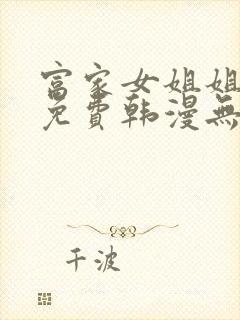 富家女姐姐
免費韩漫無
千波